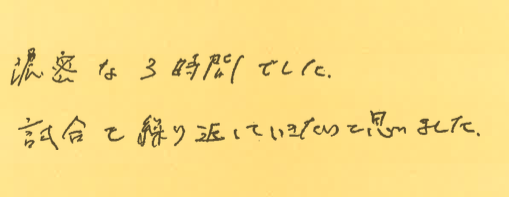 濃密な3時間でした.
試合で繰り返していきたいと思いました.